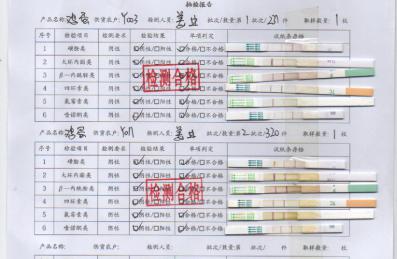 抽检报告
产品名称: 鸡蛋 供货农户: Y003 检测人员: 批次/数量第 1 批次/ 件 取样数量: 1 枚
序号 检验项目 检测要求 检验结果 单项判定 试纸条存档
1 磺胺类 阴性 ☑阴性/□阳性 ☑合格/□不合格
2 大环内酯类 阴性 ☑阴性/□阳性 ☑合格/□不合格
3 β-内酰胺类 阴性 ☑阴性/□阳性 ☑合格/□不合格
4 四环素类 阴性 ☑阴性/□阳性 ☑合格/□不合格
5 氟苯尼类 阴性 ☑阴性/□阳性 ☑合格/□不合格
6 喹诺酮类 阴性 ☑阴性/□阳性 ☑合格/□不合格
检测合格
产品名称: 鸡蛋 供货农户: 检测人员: 批次/数量第 2 批次/320 件 取样数量: 1 枚
序号 检验项目 检测要求 检验结果 单项判定 试纸条存档
1 磺胺类 阴性 ☑阴性/□阳性 ☑合格/□不合格
2 大环内酯类 阴性 ☑阴性/□阳性 ☑合格/□不合格
3 β-内酰胺类 阴性 ☑阴性/□阳性 ☑合格/□不合格
4 四环素类 阴性 ☑阴性/□阳性 ☑合格/□不合格
5 阴性 ☑阴性/□阳性 ☑合格/□不合格
6 喹诺酮类 阴性 ☑阴性/□阳性 ☑合格/□不合格
检测合格
产品名称: 供货农户: 检测人员: 批次/数量第 批次/ 件 取样数量: 枚